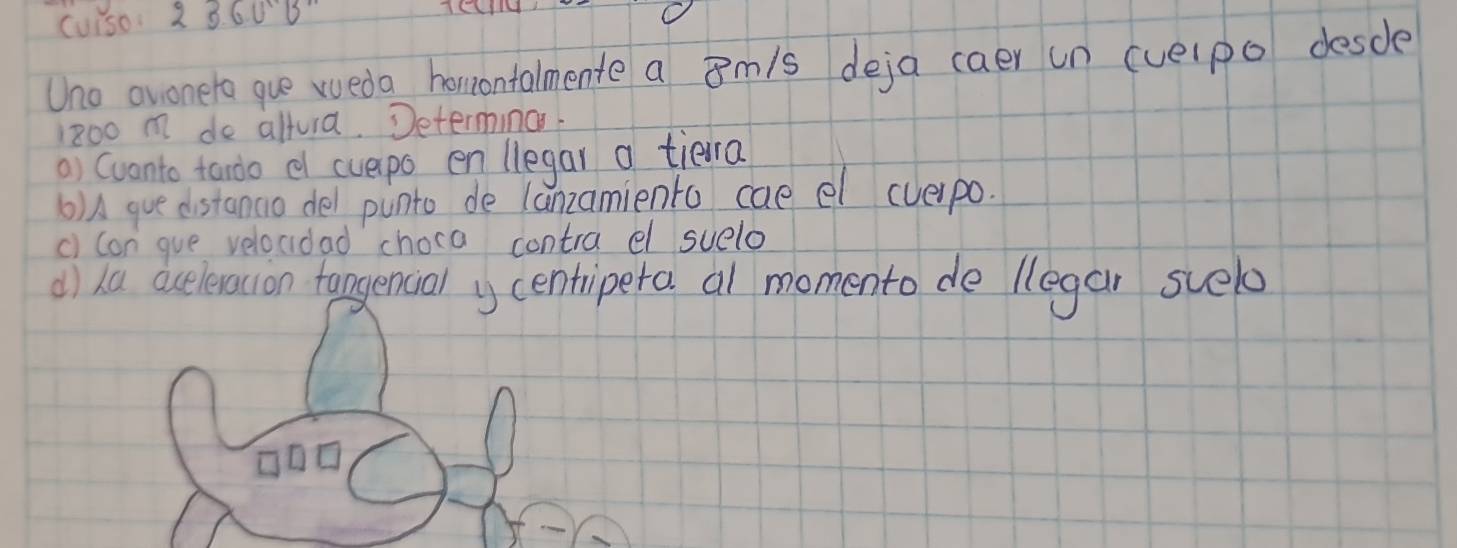 Curso: 2 BGU "B"
Una avioneta que vueda horizontalmente a 8m/s deja caer un cuerpo desde
1200 m de altura. Determina.
a) Cuanto tarda el cuerpo en llegar a tierra
b) A que distancia del punto de lanzamiento cae el cuerpo.
c) Con que velocidad choca contra el suelo
d) La aceleracion tangencial y centripeta al momento de llegar suelo